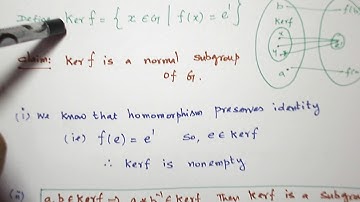 Define Ker f = { x ∈ G | f(x) = e' }
Claim: Ker f is a normal subgroup
of G.
(i) We know that homomorphism preserves identity
(ie) f(e) = e' so, e ∈ Kerf
∴ Kerf is nonempty
(ii) a, b ∈ Kerf ⇒ a * b⁻¹ ∈ Kerf Then Kerf is a subgroup
b
Kerf
a
f(
f(a